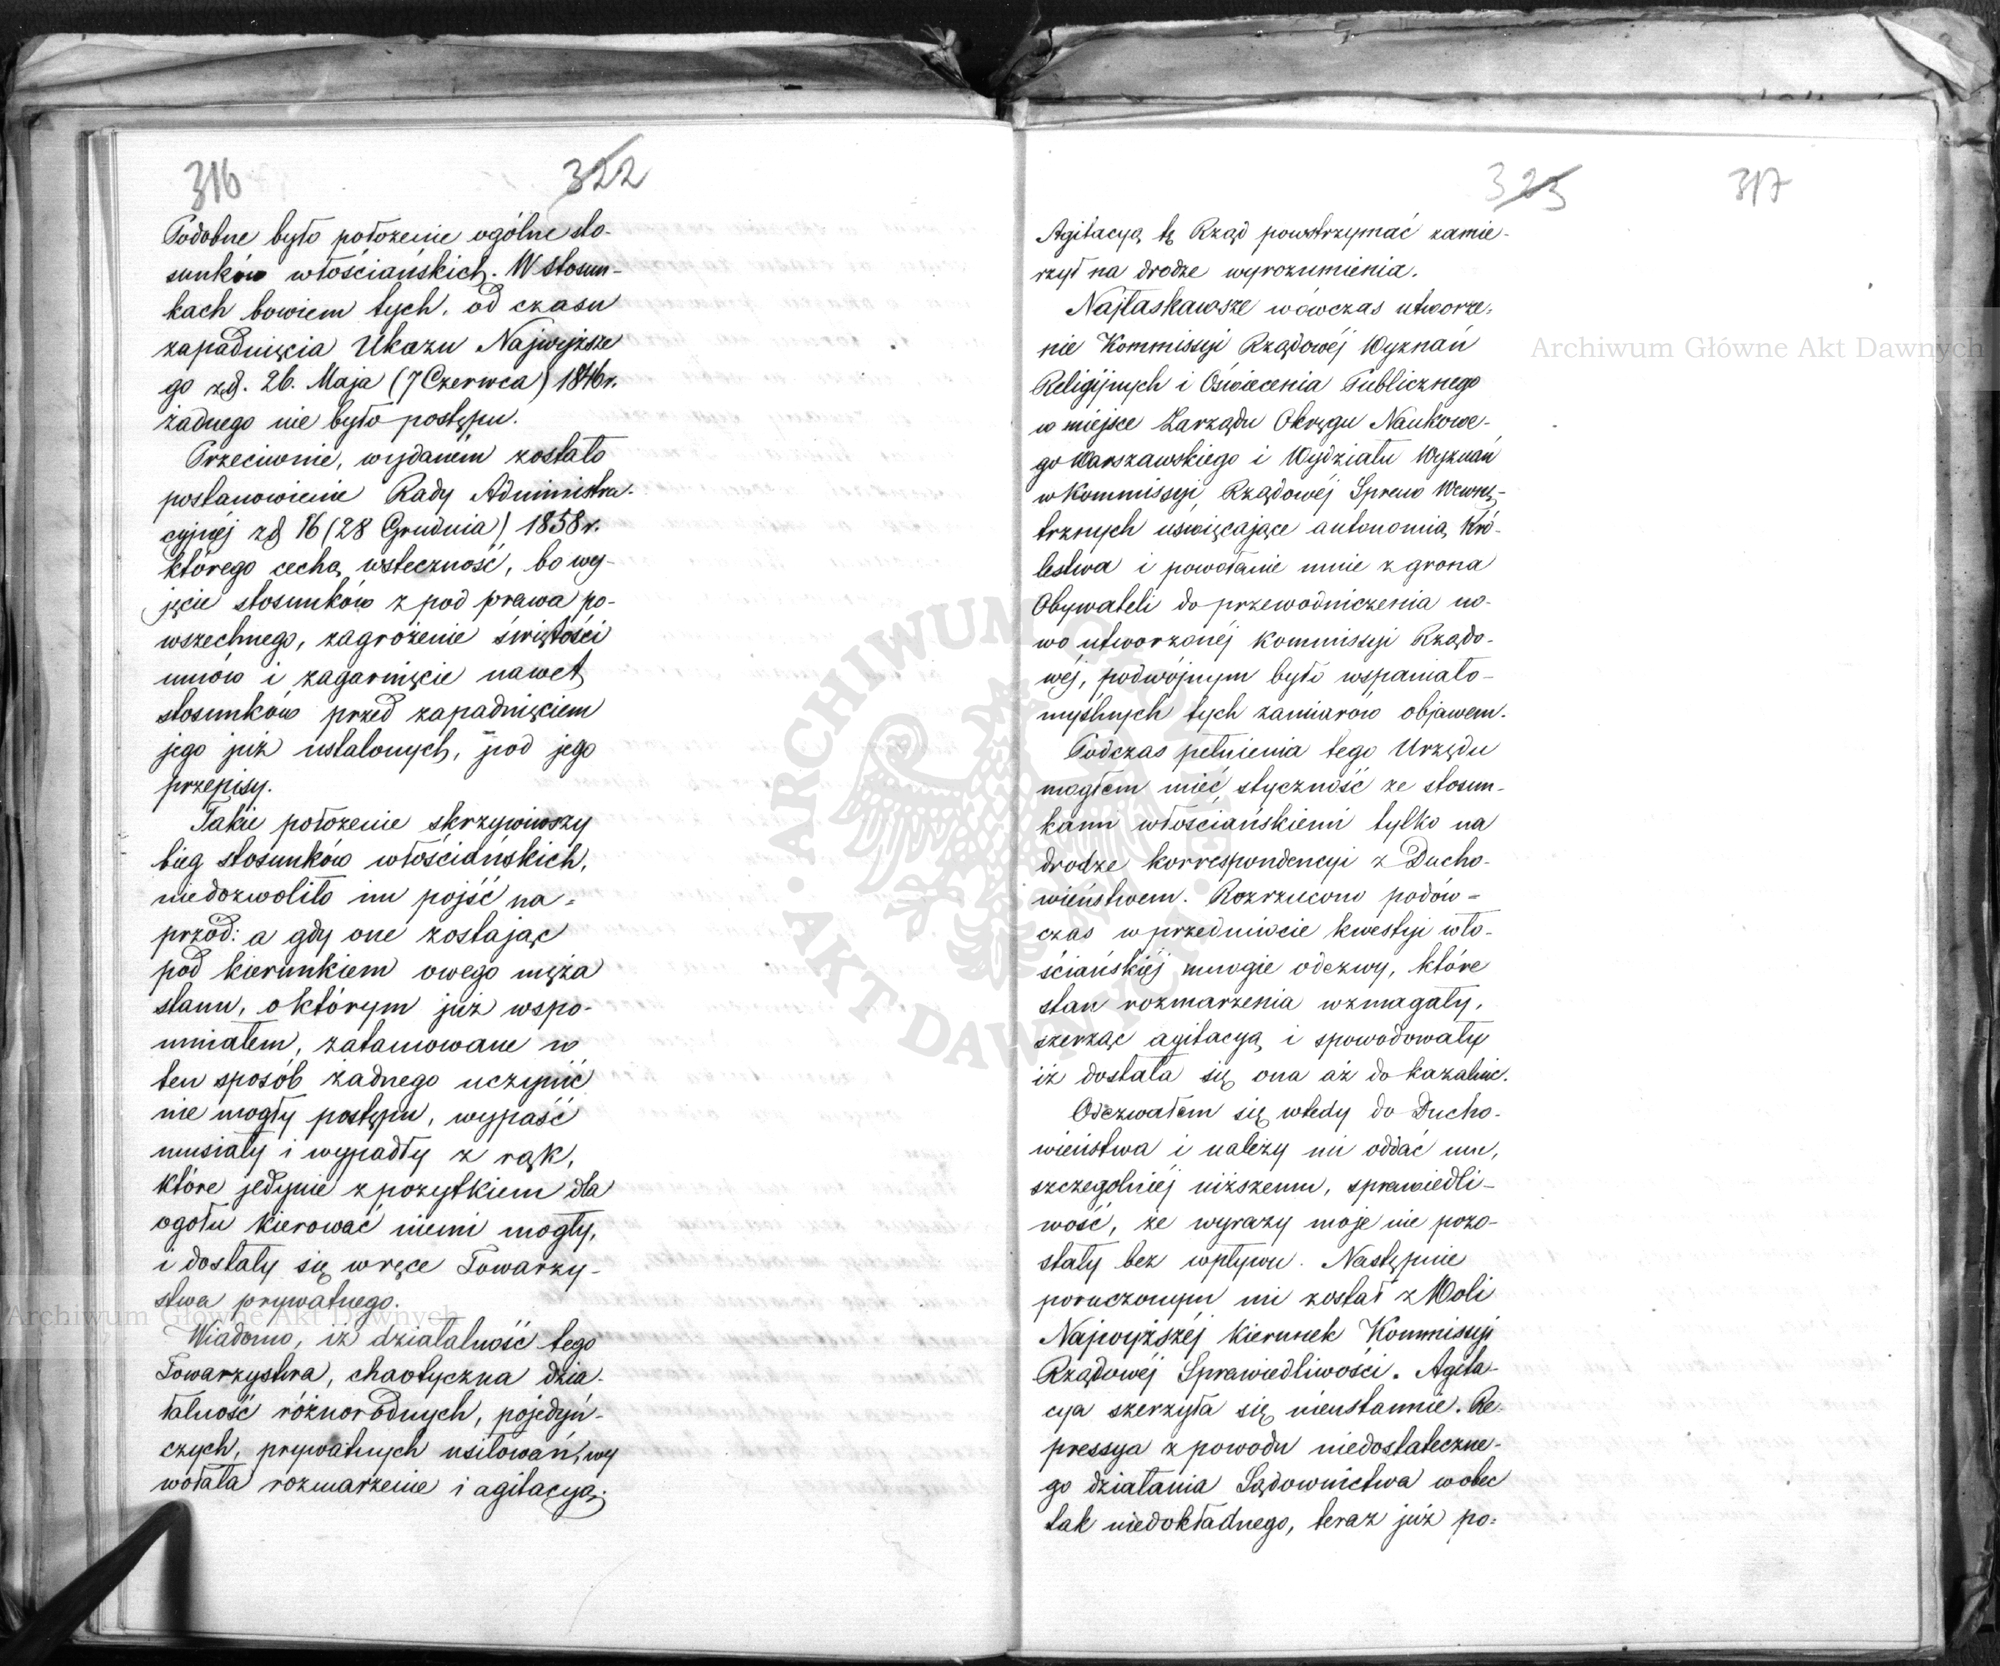 316 322
Podobne było położenie ogólne sto-
sunków włościańskich. W stosun-
kach bowiem tych, od czasu
zapadnięcia Ukazu Najwyższe
go zd. 26. Maja (7 Czerwca) 1846 r.
żadnego nie było postępu.
Przeciwnie, wydanem zostało
postanowienie Rady Administra-
cyjnéj zd 16 (28 Grudnia) 1858 r.
którego cechą wsteczność, bo wy-
jęcie stosunków z pod prawa po-
wszechnego, zagrożenie świętości
umów i zagarnięcie nawet
stosunków przed zapadnięciem
jego już ustalonych, pod jego
przepisy.
Takie położenie skrzywiwszy
bieg stosunków włościańskich,
niedozwoliło im pojść na-
przód: a gdy one zostając
pod kierunkiem owego męża
stanu, o którym już wspo-
mniałem, zatamowane w
ten sposób żadnego uczynić
nie mogły postępu, wypaść
musiały i wypadły z rąk,
które jedynie z pożytkiem dla
ogółu kierować niemi mogły,
i dostały się w ręce Towarzy-
stwa prywatnego.
Wiadomo, iż działalność tego
Towarzystwa, chaotyczna dzia-
łalność różnorodnych, pojedyń-
czych, prywatnych usiłowań, wy
wołała rozmarzenie i agitacyą.
323 317
Agitacyą tę Rząd powstrzymać zamie-
rzył na drodze wyrozumienia.
Najłaskawsze wówczas utworze-
nie Kommissyi Rządowéj Wyznań
Religijnych i Oświecenia Publicznego
w miejsce Zarządu Okręgu Naukowe-
go Warszawskiego i Wydziału Wyznań
w Kommissyi Rządowéj Spraw Wewnę-
trznych uświęcające autonomią Kró-
lestwa i powołanie mnie z grona
Obywateli do przewodniczenia no-
wo utworzonéj Kommissyi Rządo-
wéj, podwójnym było wspaniało-
myślnych tych zamiarów objawem.
Podczas pełnienia tego Urzędu
mogłem mieć styczność ze stosun-
kami włościańskiemi tylko na
drodze korrespondencyi z Ducho-
wieństwem. Rozrzucono podów-
czas w przedmiocie kwestyi wło-
ściańskiéj mnogie odezwy, które
stan rozmarzenia wzmagały,
szerząc agitacyą i spowodowały
iż dostała się ona aż do kazalnic.
Odezwałem się wtedy do Ducho-
wieństwa i należy mi oddać mu,
szczególniéj niższemu, sprawiedli-
wość, że wyrazy moje nie pozo-
stały bez wpływu. Następnie
poruczonym mi został z Woli
Najwyższéj kierunek Kommissyi
Rządowéj Sprawiedliwości. Agita-
cya szerzyła się nieustannie. Re-
pressya z powodu niedostateczne-
go działania Sądownictwa wobec
tak niedokładnego, teraz już po-
Archiwum Główne Akt Dawnych
Archiwum Główne Akt Dawnych
ARCHIWUM GŁÓWNE AKT DAWNYCH